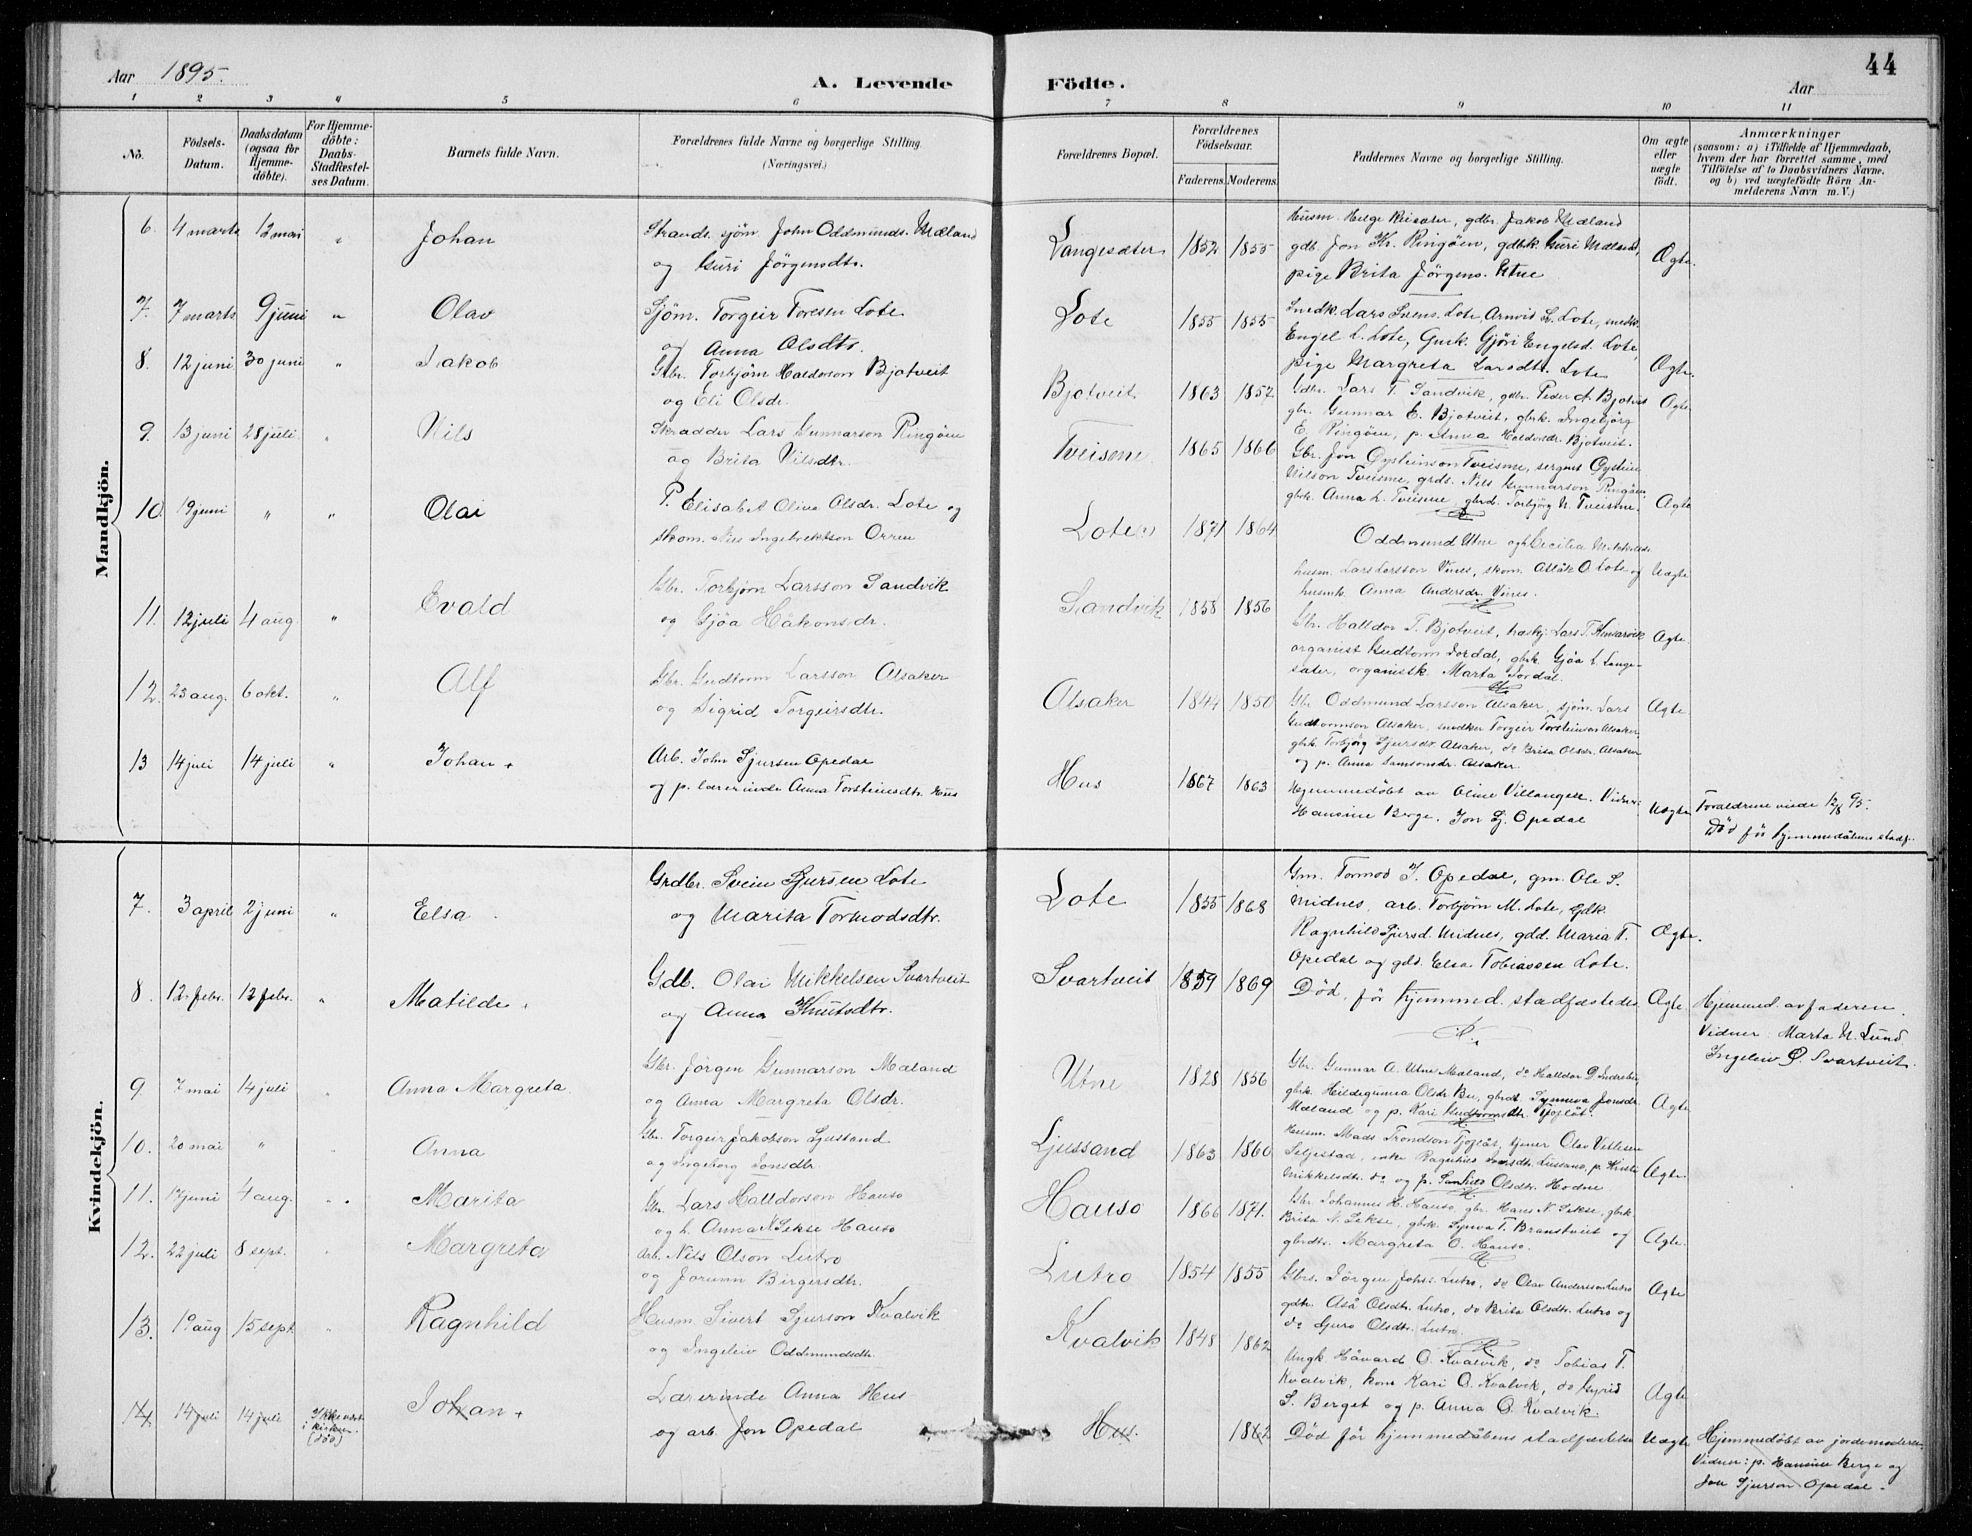 44
Aar 1895. A. Levende Födte. Aar
1 2 3 4 5 6 7 8 9 10 11
No. Födsels-Datum. Daabsdatum (ogsaa for Hjemmedöbte). For Hjemmedöbte: Daabs-Stadfæstelses Datum. Barnets fulde Navn. Forældrenes fulde Navne og borgerlige Stilling. (Næringsvei.) Forældrenes Bopæl. Forældrenes Födselsaar. Faderens. Moderens. Faddernes Navne og borgerlige Stilling. Om ægte eller uægte födt. Anmærkninger (saasom: a) i Tilfælde af Hjemmedaab, hvem der har forrettet samme, med Tilföielse af to Daabsvidners Navne, og b) ved uægtefödte Börn Anmelderens Navn m. V.)
Mandkjön.
6. 4 marts 12 mai " Johan Strands. sjöm. John Oddmunds. Mæland og Guri Jörgensdtr. Langesæter 1852 1855 Husm. Helge, gdbr. Jakob Mæland gdb. Jon Kr. Ringöen, gdbk. Guri Mæland, pige Brita Jörgens. Utne Ægte.
7. 7 marts 9 juni " Olav Sjöm. Torgeir Toresen Lote og Anna Olsdtr. Lote 1855 1855 Snedk. Lars Svens. Lote, Arnvis L. Lote, snedk. Engel L. Lote, Gmk. Gjöri Engelsd. Lote, pige Margreta Larsdtr. Lote Ægte.
8. 12 juni 30 juni " Jakob Gbr. Torbjörn Haldorson Bjotveit og Eli Olsdr. Bjotveit 1863 1857 Gbr. Lars T. Sandvik, gdbr. Peder A. Bjotveit gbr. Gunnar E. Bjotveit, gbrk. Ingebjörg E. Ringöen, p. Anna Haldorsdr. Bjotveit. Ægte
9. 13 juni 28 juli " Nils Skrædder Lars Gunnarson Ringöen og Brita Nilsdtr. Tveisme 1865 1866 Gbr. Jon Gysteinson Tveisme, Gystein Nilson Tveisme, grds. Nils Gunnarson Ringöen, gbrk. Anna L. Tveisme, gbrd. Torbjörg N. Tveisme. Ægte
10. 19 juni " " Olai P. Elisabet Olive Olsdr. Lote og skom. Nils Ingebrektson Orren Lote 1871 1864 Oddmund Utne og h. Cecilia husm. Lars Larsson Vines, skom. Aslak O. Lote og husmk. Anna Andersdr. Vines. Uægte
11. 12 juli 4 aug. " Evald Gbr. Torbjörn Larsson Sandvik og Gjöa Håkonsdr. Sandvik 1858 1856 Gbr. Halldor T. Bjotveit, Lars T. Kinsarvik organist Gudtorm Jordal, gbrk. Gjöa L. Langesater, organistk. Marta Jordal. Ægte
12. 23 aug. 6 okt. " Alf Gbr. Gudtorm Larsson Alsaker og Sigrid Torgeirsdtr. Alsaker 1844 1850 Gbr. Oddmund Larsson Alsaker, sjöm. Lars Gudtormson Alsaker, snedker Torgeir Torsteinson Alsaker, gbrk. Torbjörg Sjursdr. Alsaker, do Brita Olsdr. Alsaker og p. Anna Samsonsdr. Alsaker. Ægte
13 14 juli 14 juli " Johan + Arb. John Sjursen Opedal og p. lærerinde Anna Torsteinsdtr. Hus Hus 1867 1863 Hjemmedöbt av Oline Villanger. Vidner: Hansine Berge. Jon Sj. Opedal Uægte Forældrene viede 12/8 95. Död för hjemmedåbens stadf.
Kvindekjön.
7. 3 april 2 juni " Elsa. Grdbr. Svein Sjursen Lote og Marita Tormodsdtr. Lote 1855 1868 Gm. Tormod J. Opedal, gm. Ole S. Midnes, arb. Torbjörn M. Lote, Gdk. Ragnhild Sjursd. Midnes, gdd. Maria T. Opedal og gds. Elsa Tobiassen Lote. Ægte.
8. 12. febr. 12 febr. " Matilde. Gdb. Olai Mikkelsen Svartveit og Anna Knutsdtr. Svartveit 1859 1869 Död, för hjemmed. stadfæstedes Ægte. Hjemmed. av faderen. Vidner. Marta N. Lund. Ingeleiv O. Svartveit.
9. 7 mai 14 juli " Anna Margreta. Gbr. Jörgen Gunnarson Mæland og Anna Margreta Olsdr. Utne 1828 1856 Gbr. Gunnar A. Utne Mæland, do Halldor D. Indrebö, gbrk. Hildegunna Olsdr. Bu, gbrdt. Synneva Jonsdr. Mæland og p. Kari Gudtormsdtr. Ægte
10. 20 mai " " Anna Gbr. Torgeir Jakobson Ljussand og Ingeborg Jonsdtr. Ljussand 1863 1860 Husm. Mads Trondson, tjener Olav Seljestad, enke Ragnhild Lussand, p. Kirsti Mikkelsdtr. do og p. Olsdtr. Hodne Ægte.
11. 17 juni 4 aug. " Marita Gbr. Lars Halldorson Hauso og h. Anna N. Sekse Hauso Hauso 1866 1871. Gbr. Johannes H. Hauso, gbr. Hans N. Sekse, gbrk. Brita N. Sekse, gbrk. Synva T. Branstveit og gbrdtr. Margreta O. Hauso. Ægte.
12. 22 juli 8 sept. " Margreta Arb. Nils Olson Lutro og Jorunn Birgersdtr. Lutro 1854 1855 Gbrs. Jörgen Johs. Lutro, do Olav Anderson Lutro gdtr. Aså Olsdtr. Lutro, do Brita Olsdtr. Lutro og do Guro Olsdtr. Lutro Ægte
13. 1 aug 15 sept. " Ragnhild Husm. Sivert Sjurson Kvalvik og Ingeleiv Oddmundsdtr. Kvalvik 1848 1862 Ungk. Håvard O. Kvalvik, do Tobias T. Kvalvik, kone Kari O. Kvalvik, do Gyrid S. Berget og p. Anna O. Kvalvik. Ægte
14 14 juli 14 juli Ikke i kirken. (död) Johan + Lærerinde Anna Hus og arb. Jon Opedal Hus. 1862 Död för hjemmedåbens stadfæstelse Uægte Hjemmedöbt av jordemoderen. Vidner: p. Hansine Berge og Jon Sjurson Opedal.